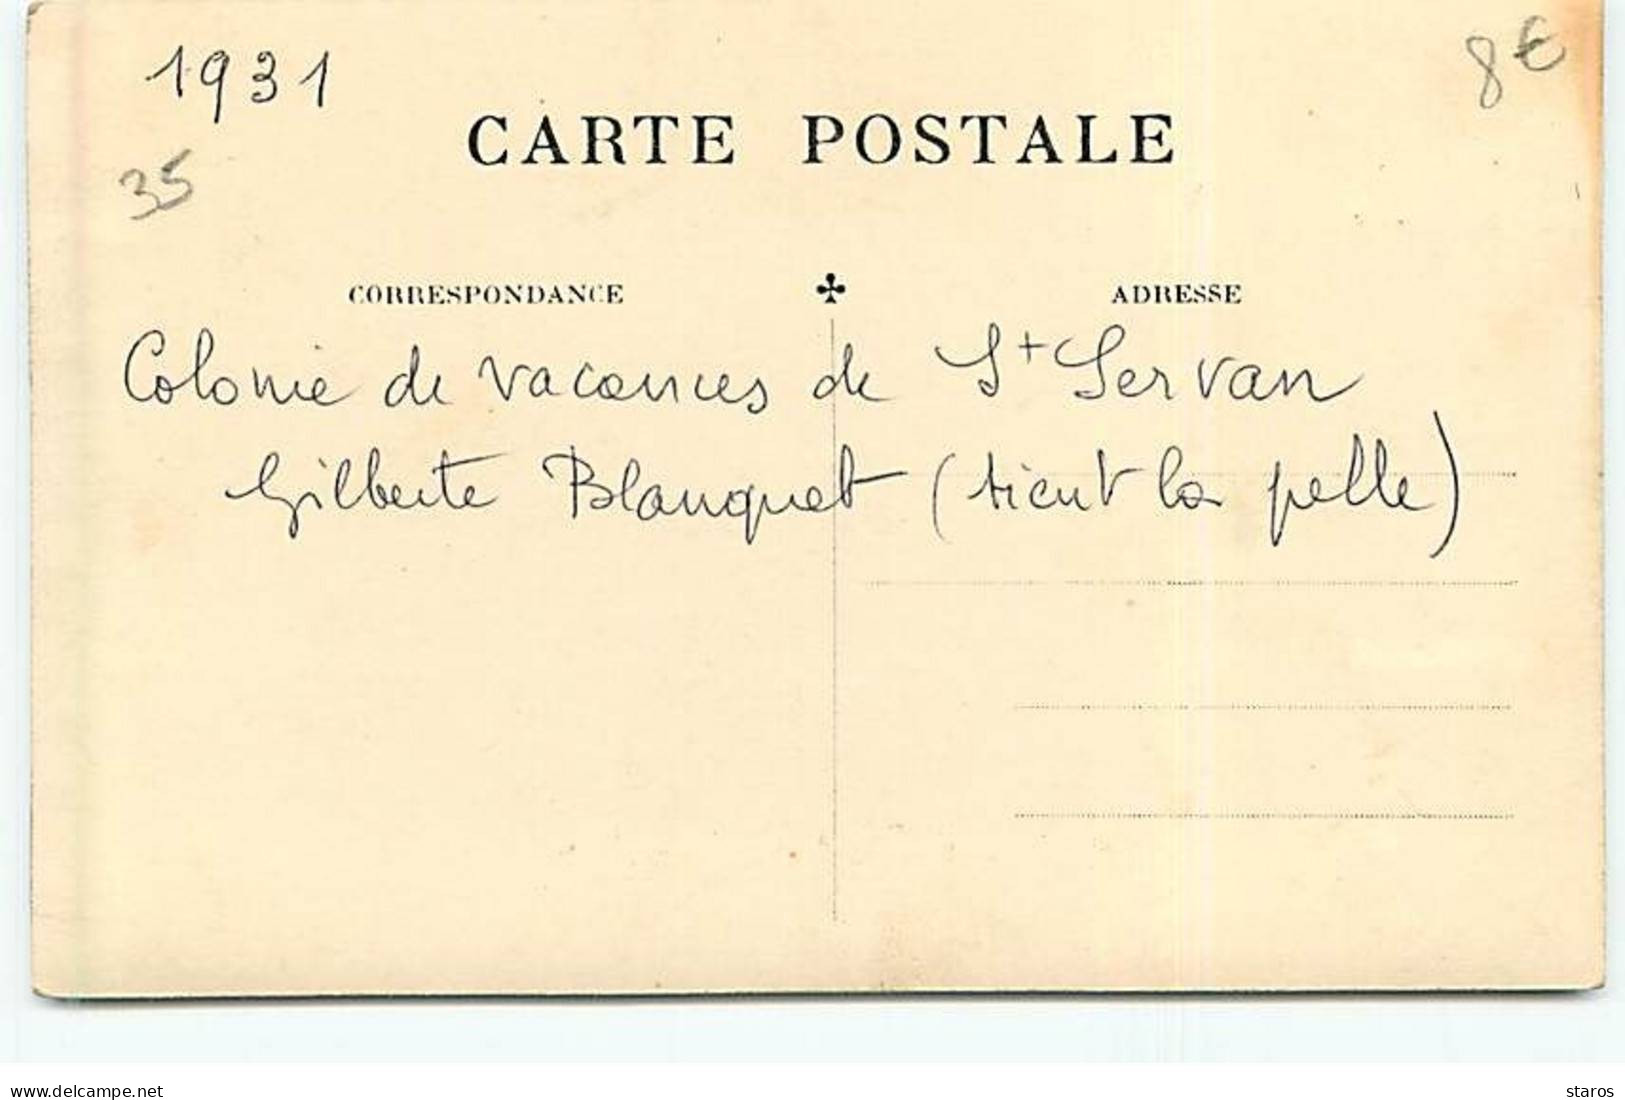 1931
8€
CARTE POSTALE
35
CORRESPONDANCE
ADRESSE
Colonie de vacances de St Servan
Gilberte Blanquet (tient la pelle)
www.delcampe.net
staros